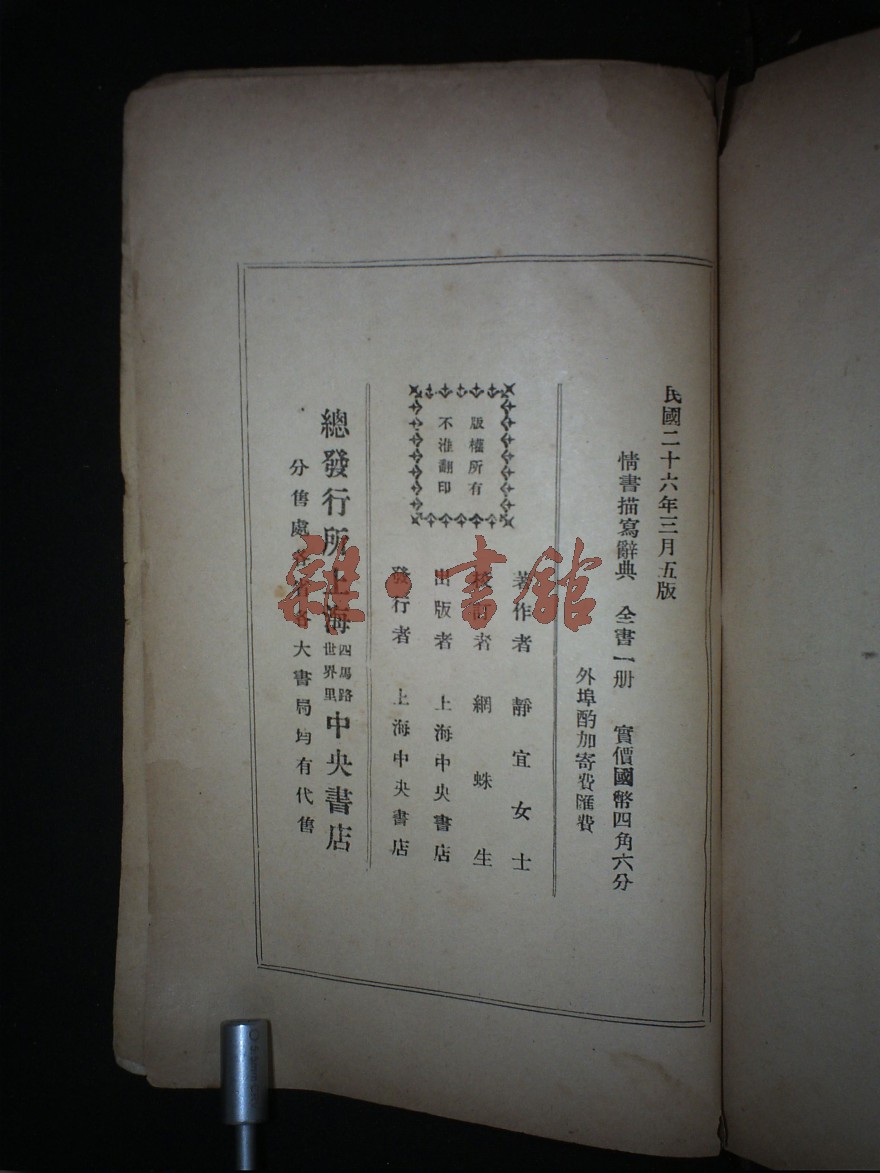 民國二十六年三月五版
情書描寫辭典 全書一册 實價國幣四角六分
外埠酌加寄費匯費
版權所有
不准翻印
著作者 靜宜女士
校訂者 網蛛生
出版者 上海中央書店
發行者 上海中央書店
總發行所上海四馬路世界里中央書店
分售處各省各大書局均有代售
雜·書館